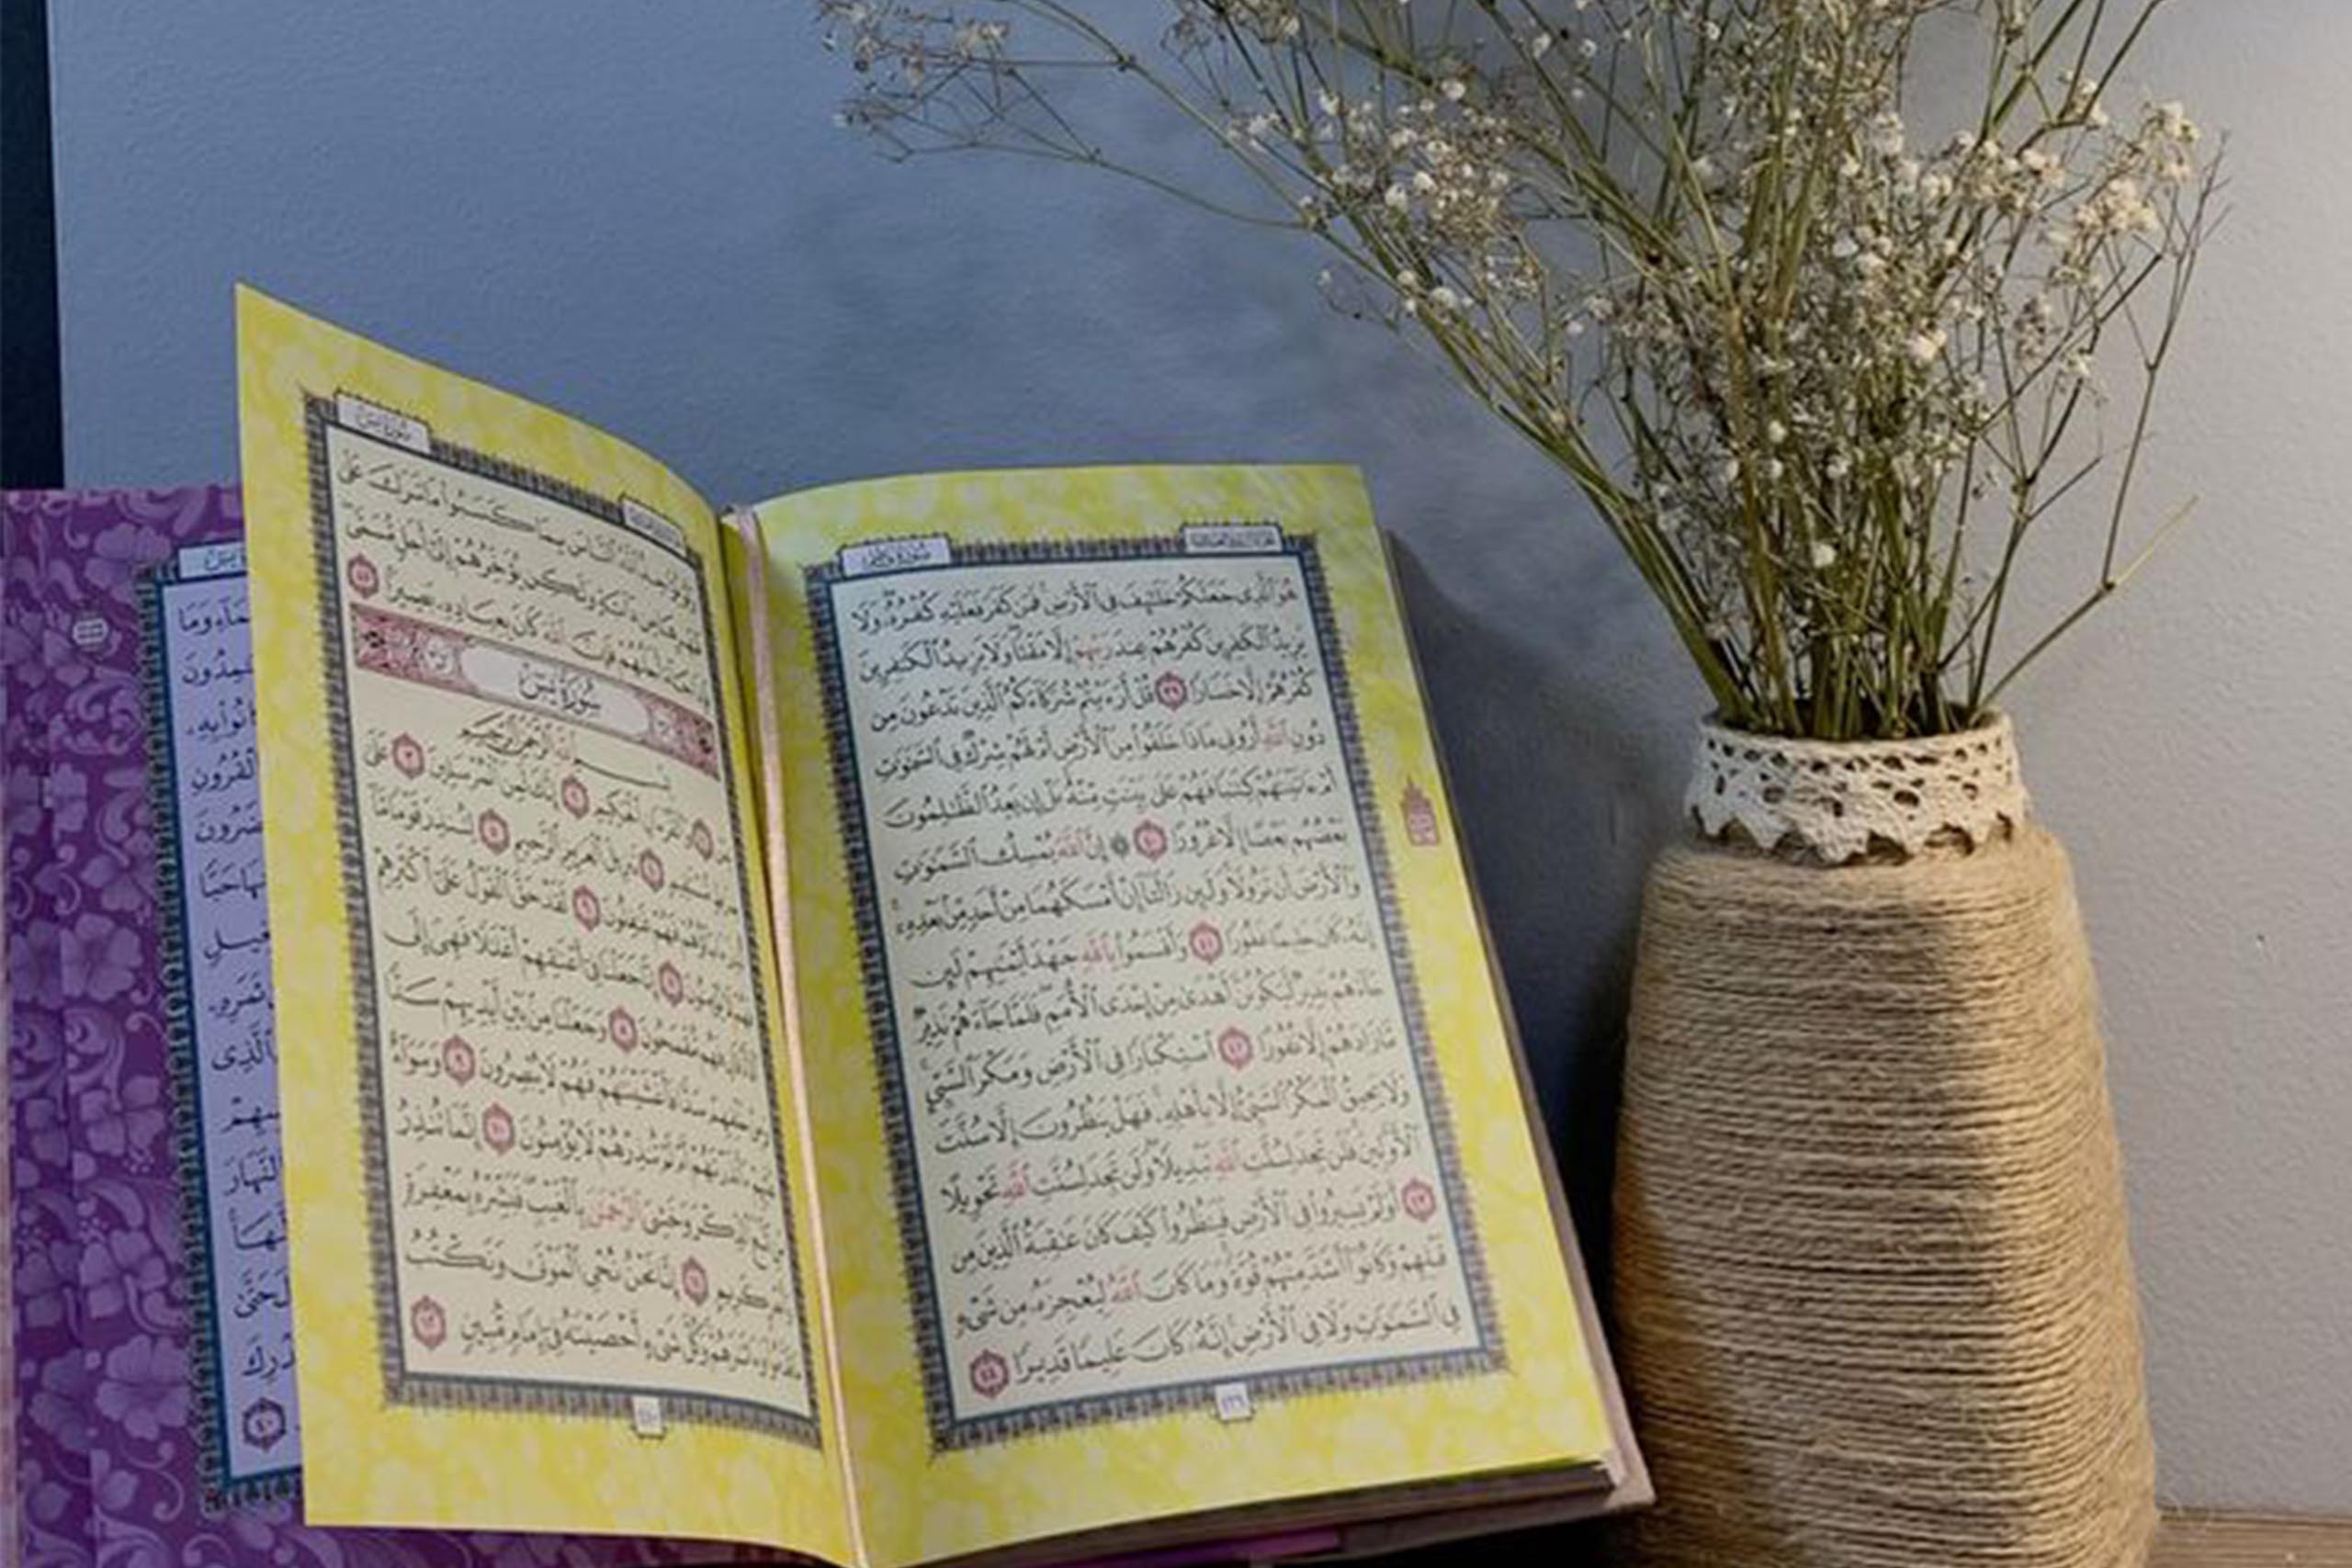 سُورَةُ فَاطِرٍ
هُوَ ٱلَّذِى جَعَلَكُمْ خَلَٰٓئِفَ فِى ٱلْأَرْضِ فَمَن كَفَرَ فَعَلَيْهِ كُفْرُهُۥ وَلَا
يَزِيدُ ٱلْكَٰفِرِينَ كُفْرُهُمْ عِندَ رَبِّهِمْ إِلَّا مَقْتًا وَلَا يَزِيدُ ٱلْكَٰفِرِينَ
كُفْرُهُمْ إِلَّا خَسَارًا ٣٩ قُلْ أَرَءَيْتُمْ شُرَكَآءَكُمُ ٱلَّذِينَ تَدْعُونَ مِن
دُونِ ٱللَّهِ أَرُونِى مَاذَا خَلَقُوا۟ مِنَ ٱلْأَرْضِ أَمْ لَهُمْ شِرْكٌ فِى ٱلسَّمَٰوَٰتِ
أَمْ ءَاتَيْنَٰهُمْ كِتَٰبًا فَهُمْ عَلَىٰ بَيِّنَتٍ مِّنْهُ بَلْ إِن يَعِدُ ٱلظَّٰلِمُونَ
بَعْضُهُم بَعْضًا إِلَّا غُرُورًا ٤٠ ۞ إِنَّ ٱللَّهَ يُمْسِكُ ٱلسَّمَٰوَٰتِ
وَٱلْأَرْضَ أَن تَزُولَا وَلَئِن زَالَتَآ إِنْ أَمْسَكَهُمَا مِنْ أَحَدٍ مِّنۢ بَعْدِهِۦٓ
إِنَّهُۥ كَانَ حَلِيمًا غَفُورًا ٤١ وَأَقْسَمُوا۟ بِٱللَّهِ جَهْدَ أَيْمَٰنِهِمْ لَئِن
جَآءَهُمْ نَذِيرٌ لَّيَكُونُنَّ أَهْدَىٰ مِنْ إِحْدَى ٱلْأُمَمِ فَلَمَّا جَآءَهُمْ نَذِيرٌ
مَّا زَادَهُمْ إِلَّا نُفُورًا ٤٢ ٱسْتِكْبَارًا فِى ٱلْأَرْضِ وَمَكْرَ ٱلسَّيِّئِ
وَلَا يَحِيقُ ٱلْمَكْرُ ٱلسَّيِّئُ إِلَّا بِأَهْلِهِۦ فَهَلْ يَنظُرُونَ إِلَّا سُنَّتَ
ٱلْأَوَّلِينَ فَلَن تَجِدَ لِسُنَّتِ ٱللَّهِ تَبْدِيلًا وَلَن تَجِدَ لِسُنَّتِ ٱللَّهِ تَحْوِيلًا
٤٣ أَوَلَمْ يَسِيرُوا۟ فِى ٱلْأَرْضِ فَيَنظُرُوا۟ كَيْفَ كَانَ عَٰقِبَةُ ٱلَّذِينَ مِن
قَبْلِهِمْ وَكَانُوٓا۟ أَشَدَّ مِنْهُمْ قُوَّةً وَمَا كَانَ ٱللَّهُ لِيُعْجِزَهُۥ مِن شَىْءٍ
فِى ٱلسَّمَٰوَٰتِ وَلَا فِى ٱلْأَرْضِ إِنَّهُۥ كَانَ عَلِيمًا قَدِيرًا ٤٤
٤٣٩
سُورَةُ يسٓ
وَلَوْ يُؤَاخِذُ ٱللَّهُ ٱلنَّاسَ بِمَا كَسَبُوا۟ مَا تَرَكَ عَلَىٰ
ظَهْرِهَا مِن دَآبَّةٍ وَلَٰكِن يُؤَخِّرُهُمْ إِلَىٰٓ أَجَلٍ مُّسَمًّى
فَإِذَا جَآءَ أَجَلُهُمْ فَإِنَّ ٱللَّهَ كَانَ بِعِبَادِهِۦ بَصِيرًۢا ٤٥
سُورَةُ يسٓ
بِسْمِ ٱللَّهِ ٱلرَّحْمَٰنِ ٱلرَّحِيمِ
يسٓ ١ وَٱلْقُرْءَانِ ٱلْحَكِيمِ ٢ إِنَّكَ لَمِنَ ٱلْمُرْسَلِينَ ٣ عَلَىٰ
صِرَٰطٍ مُّسْتَقِيمٍ ٤ تَنزِيلَ ٱلْعَزِيزِ ٱلرَّحِيمِ ٥ لِتُنذِرَ قَوْمًا مَّآ
أُنذِرَ ءَابَآؤُهُمْ فَهُمْ غَٰفِلُونَ ٦ لَقَدْ حَقَّ ٱلْقَوْلُ عَلَىٰٓ أَكْثَرِهِمْ
فَهُمْ لَا يُؤْمِنُونَ ٧ إِنَّا جَعَلْنَا فِىٓ أَعْنَٰقِهِمْ أَغْلَٰلًا فَهِىَ إِلَى
ٱلْأَذْقَانِ فَهُم مُّقْمَحُونَ ٨ وَجَعَلْنَا مِنۢ بَيْنِ أَيْدِيهِمْ سَدًّا
وَمِنْ خَلْفِهِمْ سَدًّا فَأَغْشَيْنَٰهُمْ فَهُمْ لَا يُبْصِرُونَ ٩ وَسَوَآءٌ
عَلَيْهِمْ ءَأَنذَرْتَهُمْ أَمْ لَمْ تُنذِرْهُمْ لَا يُؤْمِنُونَ ١٠ إِنَّمَا تُنذِرُ
مَنِ ٱتَّبَعَ ٱلذِّكْرَ وَخَشِىَ ٱلرَّحْمَٰنَ بِٱلْغَيْبِ فَبَشِّرْهُ بِمَغْفِرَةٍ
وَأَجْرٍ كَرِيمٍ ١١ إِنَّا نَحْنُ نُحْىِ ٱلْمَوْتَىٰ وَنَكْتُبُ
مَا قَدَّمُوا۟ وَءَاثَٰرَهُمْ وَكُلَّ شَىْءٍ أَحْصَيْنَٰهُ فِىٓ إِمَامٍ مُّبِينٍ ١٢
٤٤٠
يسٓ
وَمَا
ٱلْقُرُونِ
ٱلَّذِى
ٱلنَّهَارَ
حَتَّىٰ
٤٠